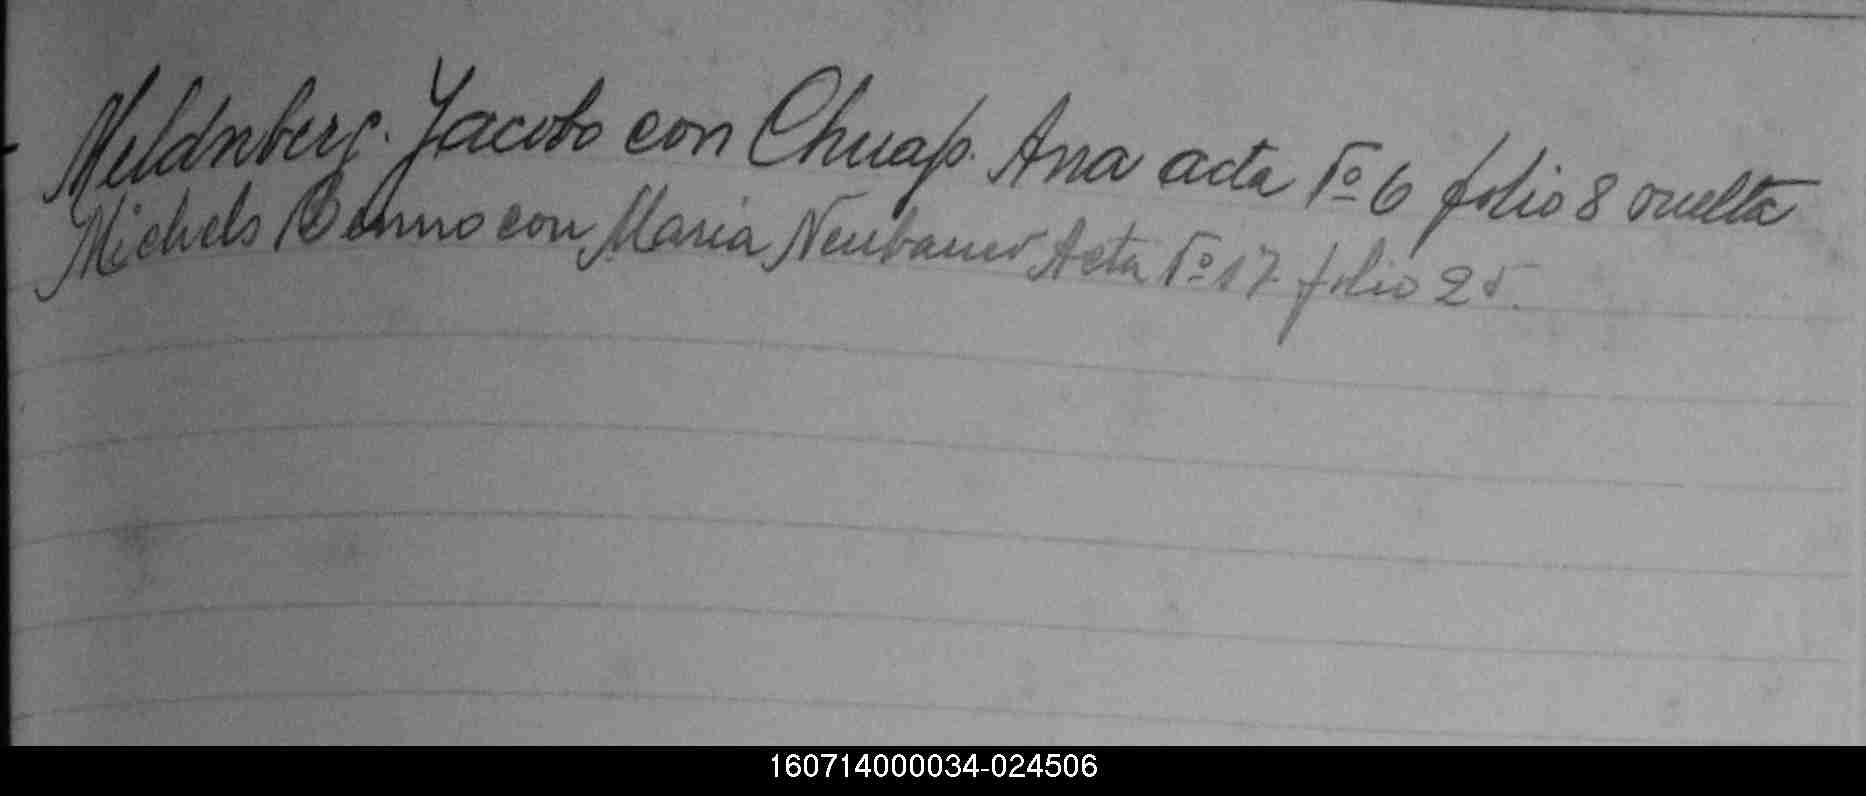 Meldnberg. Jacobo con Chuap. Ana acta Nº 6 folio 8 vuelta
Michels Benno con Maria Neubauer Acta Nº 17 folio 25.
160714000034-024506